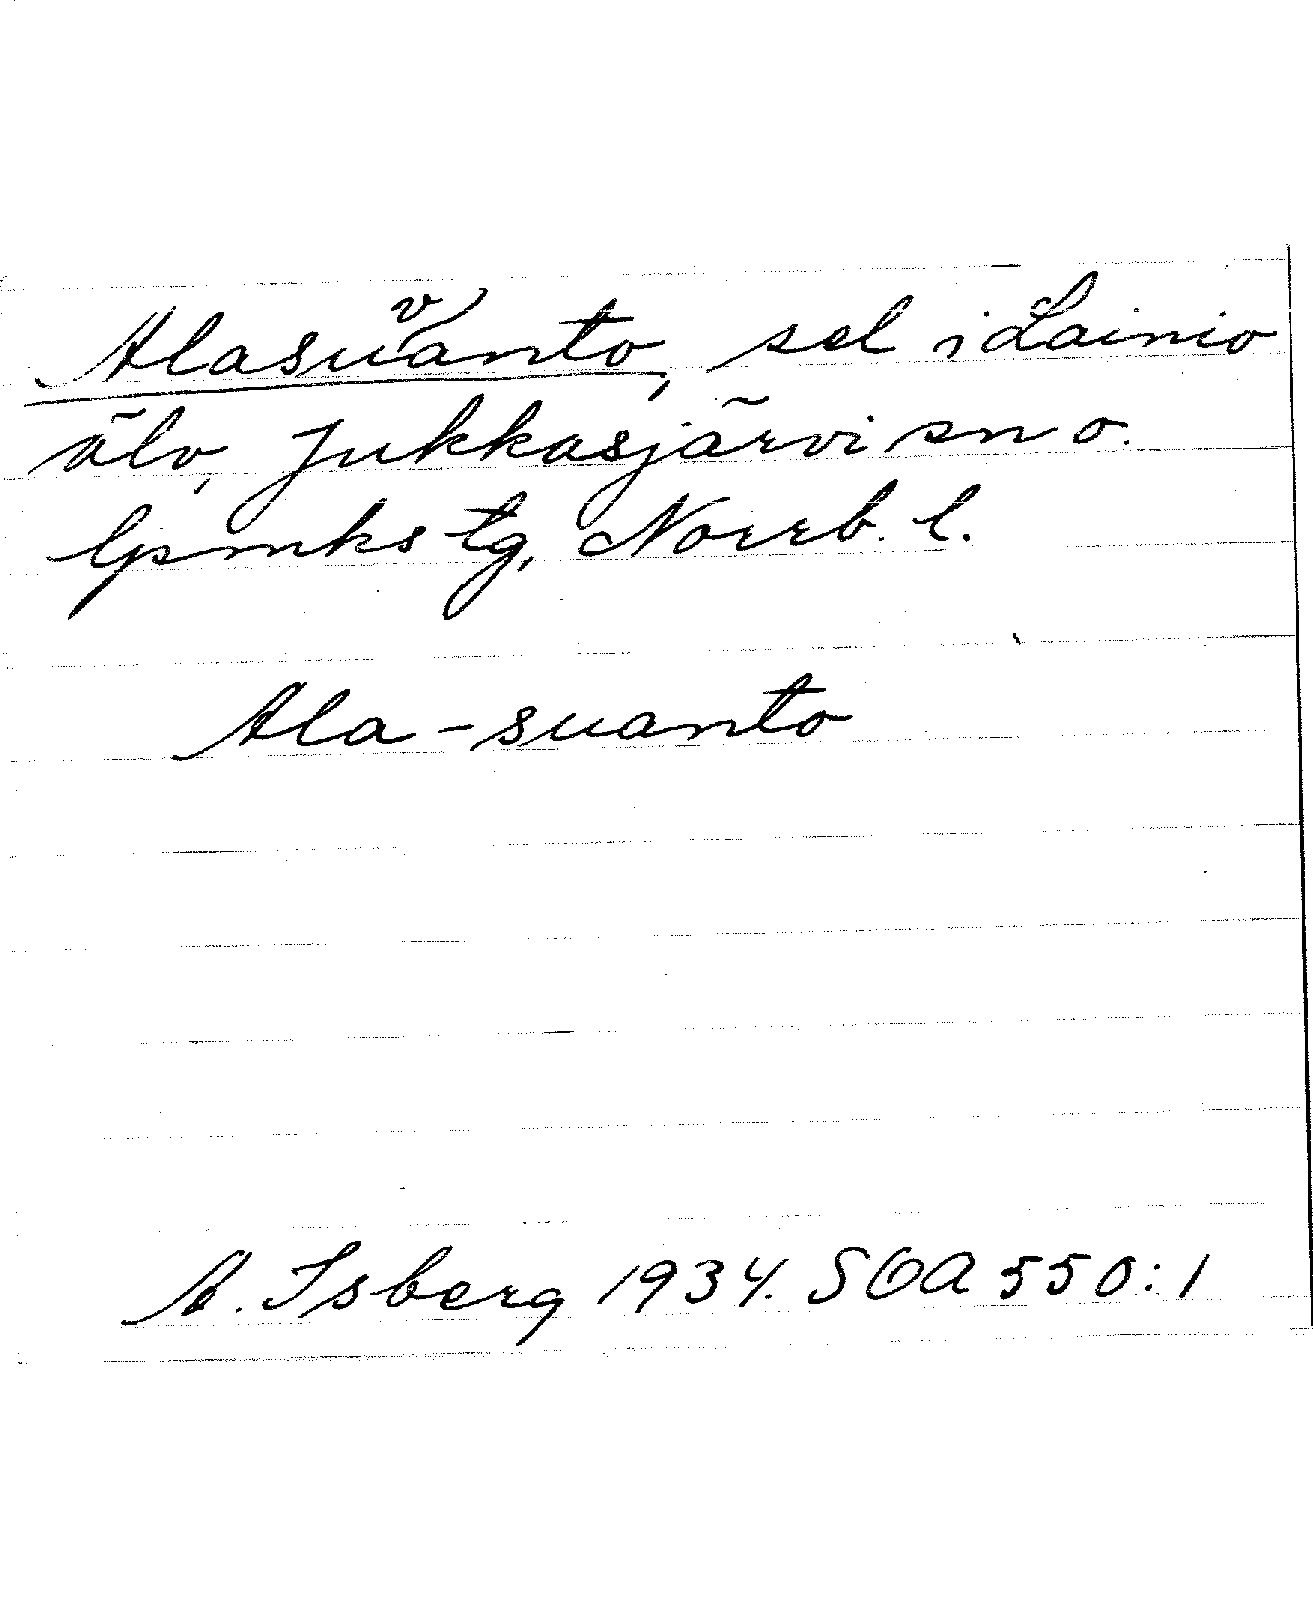 Alasu(v)anto, sel i Lainio
älv, Jukkasjärvi sn o.
lpmks tg, Norrb. l.
Ala-suanto
A. Isberg 1934. SOA 550:1